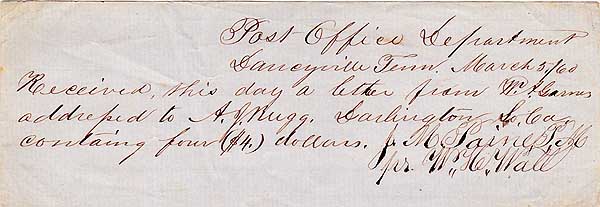 Post Office Department
Dancyville Tenn. March 5/60
Received, this day a letter from Wm
addressed to A. J. Rugg. Darlington So. Ca.
containg four ($4.) dollars. J. M. Paine P. M
pr. W. H. Wall